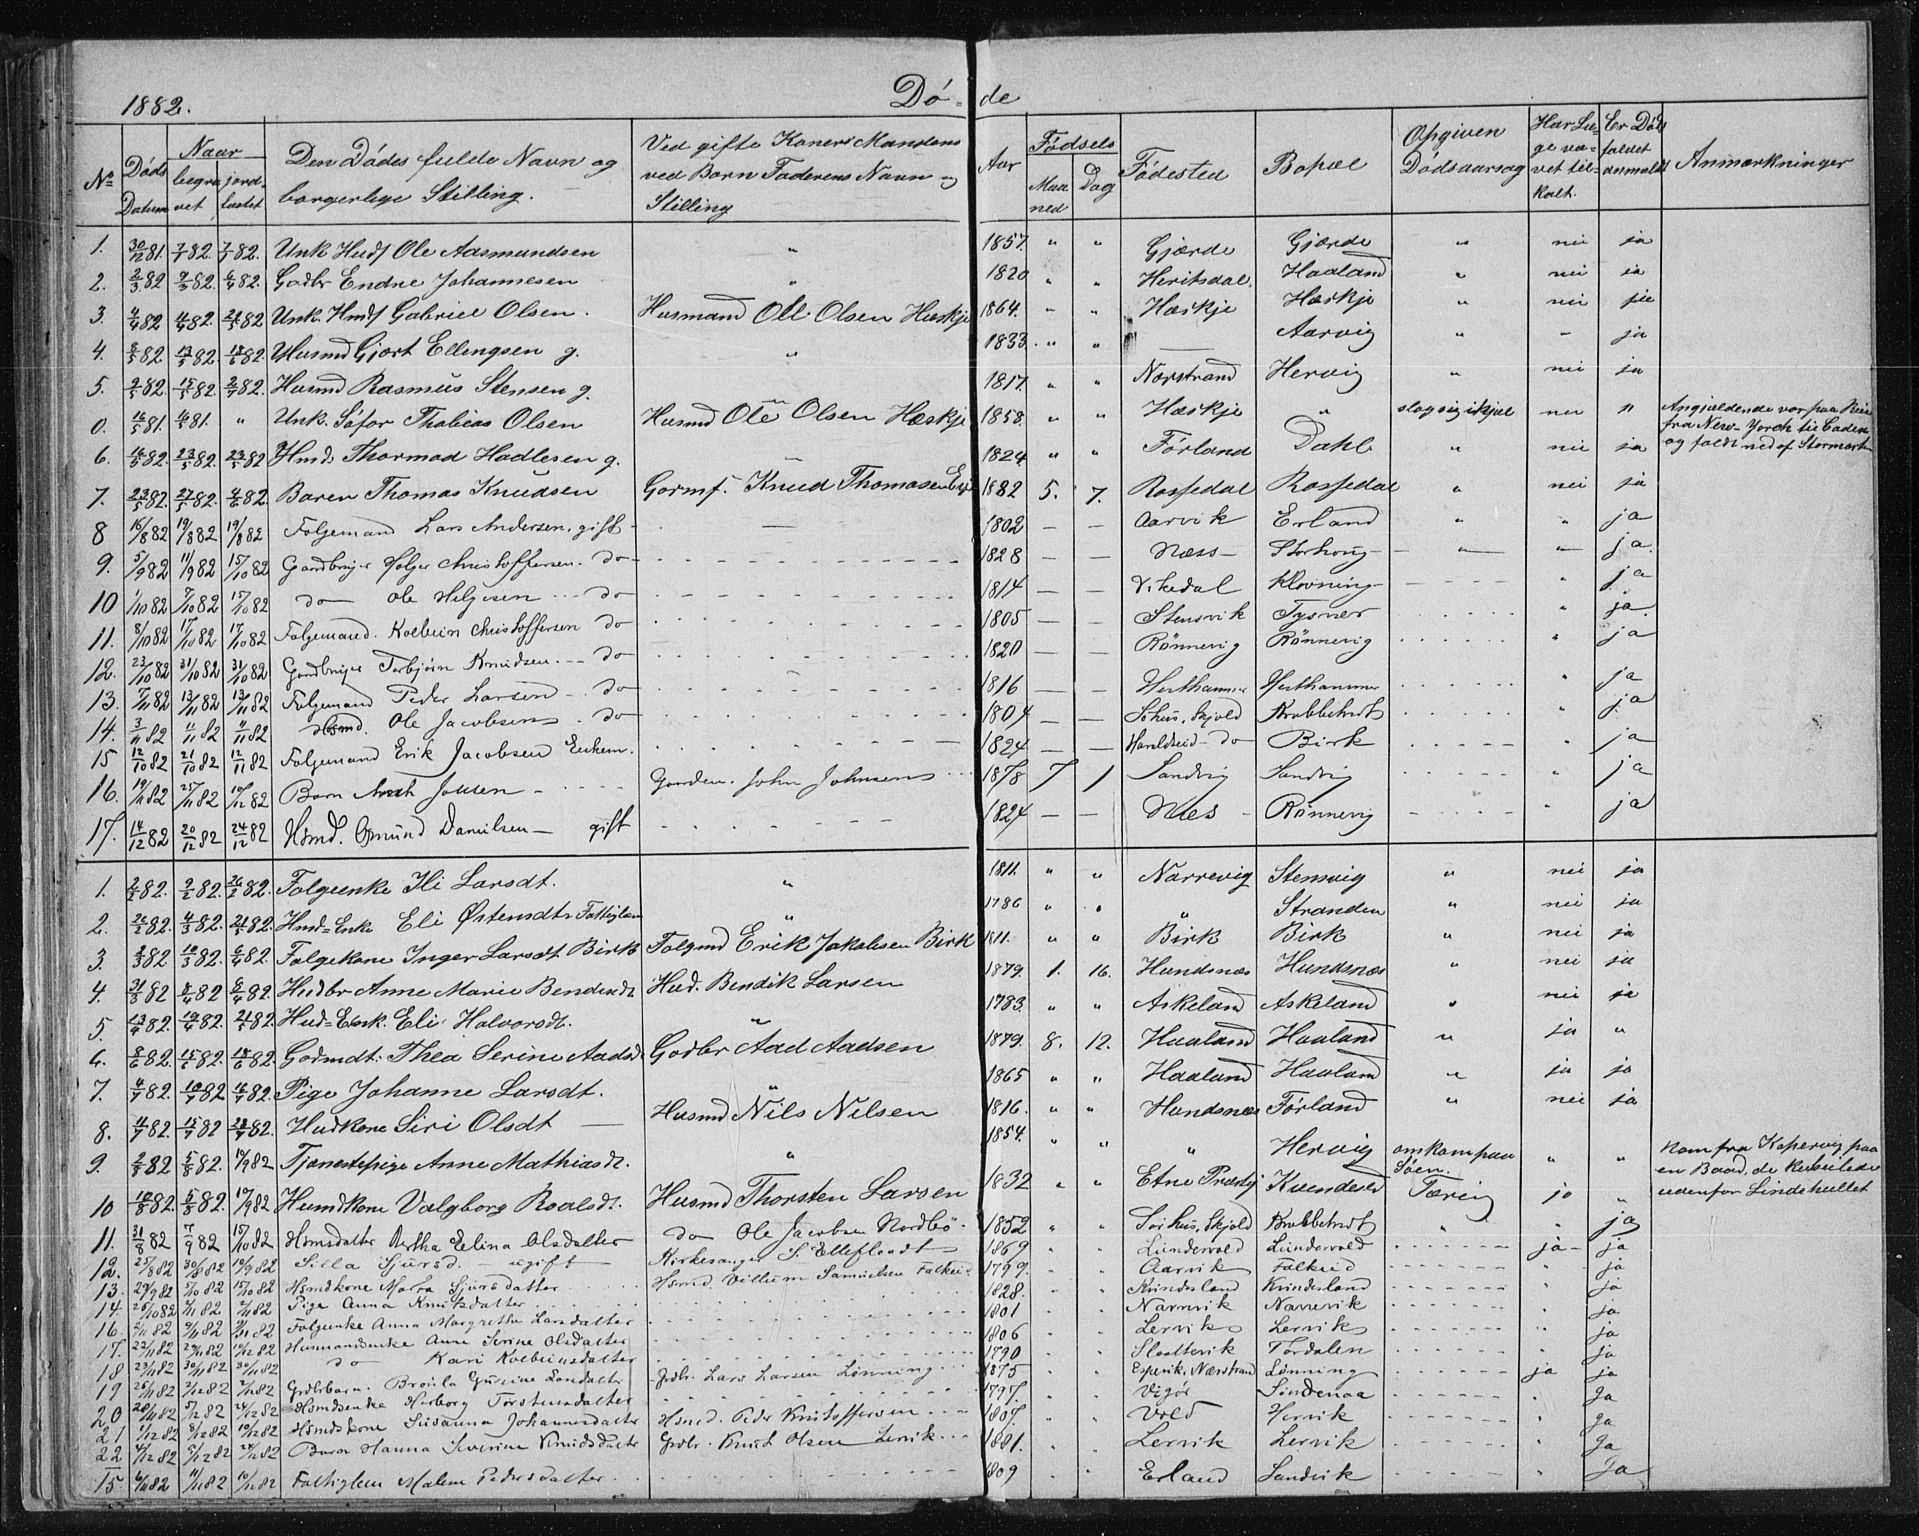 1882. Dø- de
No Døds Datum Naar begra vet jord- fæstet Den Dødes fulde Navn og borgerlige Stilling. Ved gifte Koners Mandens ved Børn Faderens Navn og Stilling Aar Fødsels Maa ned Dag Fødested Bopæl Opgiven Dødsaarsag Har Læ- ge væ- vet til- kaldt. Er Døds faldet anmeldt Anmærkninger
1. 30/12 81. 7/1 82. 7/5 82. Unk. Husf Ole Aasmundsen " 1857. " " Gjærde Gjærde " nei ja
2. 2/3 82 9/3 82. 6/4 82. Gadbr Endre Johannesen " 1820 " " Heritsdal. Haaland " nei ja
3. 4/4 82 11/4 82. 21/5 82 Unk. Hmdf Gabriel Olsen. Husmand Ole Olsen Hæskje 1864. " " Hæskje Hæskje " nei ja
4. 8/5 82 13/5 82. 18/6 82. Husmd Gjort Ellingsen g. " 1833. " " — Aarvig " - ja
5. 9/5 82. 15/5 82. 2/7 82. Husmd Rasmus Stensen g. 1817. " " Norstrand Hervig " nei ja
0. 16/5 81. 16/5 81. " Unk. Søfor Thobias Olsen Husmd Ole Olsen Hæskje 1858. " " Hæskje " slog sig ihjel nei " Angjældende var paa Reise
fra New-Yorck til Cadix
6. 16/5 82. 23/5 82. 23/5 82 Hmd. Thormod Hadlesen g. 1824 " " Førland Dahl " nei ja og faldt ned af Stormasten
7. 23/5 82. 27/5 82. 4/6 82. Baren Thomas Knudsen Gormf. Knud Thomasen 1882 5. 7. Rossedal Rossedal " nei ja
8 16/8 82 19/8 82 19/8 82 Folgemand Lars Andersen. gift - — 1802 — — Aarvik Erland " " ja
9. 5/9 82 11/9 82 15/10 82 Gaardbruger Holger Christoffersen. do 1828 — — Næss Storhoug — " — " ja.
10 1/10 82 7/10 82 15/10 82 do Ole Helgesen do 1814 — — Vikedal Klovning " ja
11. 8/10 82 17/10 82 17/10 82 Folgemand. Kolbein Christoffersen do 1805 — — Stensvik Tysvær " ja
12. 23/10 82 31/10 82 31/10 82 Gardbruger Torbjørn Knudsen do 1820 — — Rønnevig Rønnevig " ja
13. 7/11 82 13/11 82 13/11 82 Folgemand Peder Larsen do 1816 — — Hesthammer Hesthammer ja
14. 3/11 82 11/11 82 11/11 82 Hsmd. Ole Jacobsen do 1804 — — Søhus, Skjold Krabbetvedt ja
15 12/10 82 21/10 82 12/11 82 Folgemand Erik Jacobsen Enkem. 1824 — — Haraldseid do Birk " ja
16. 19/11 82 25/11 82 10/12 82 Barn Johnsen Gaarden. John Johnsen 1878 7 1 Sandvig Sandvig " ja
17. 14/12 82 20/12 82 24/12 82 Hsmd. Omund Danielsen gift 1824 — — Næs Rønnevig " ja
1. 2/2 82. 9/2 82. 26/2 82. Folgeenke Ili Larsdt. " 1811. " " Narrevig Stensvig " nei ja
2. 22/2 82. 4/3 82. 21/4 82. Husd=Enke Eli Østensdt Fattiglem " 1786 " " " Stranden " nei ja
3. 2/3 82 10/3 82. 6/4 82. Folgekone Inger Larsdt Birk Folgmd Erik Jakobsen Birk 1811. " " Birk Birk " nei ja
4. 31/3 82 8/4 82 6/4 82. Husdbr Anne Marie Bendiksdt Husd. Bendik Larsen 1879. 1. 16. Hundsnæs Hundsnæs " nei ja
5. 13/4 82. 19/4 82. 21/5 82. Husd=Enk. Eli Halvorsdt. " 1783. " " Askeland Askeland " nei ja
6. 8/6 82. 15/6 82. 18/6 82. Godmdt. Thea Serine Aadsdt Godbr Aad Aadsen 1879. 8. 12. Haaland Haaland " ja "
7. 4/7 82. 10/7 82 16/7 82. Pige Johanne Larsdt. " 1865 " " Haaland Haaland " ja ja
8. 11/7 82. 15/7 82 23/7 82. Husdkone Siri Olsdt — Husmd Nils Nilsen 1816. " " Hundsnæs Førland " nei ja
9. 2/8 82 5/8 82. 10/9 82 Tjenestepige Anne Mathiasdt. " 1854. " " " Hervig omkom paa Søen. " " kom fra Kopervig paa
en Baad, de kuseilede
10 10/8 82. 5/8 82. 10/9 82 Husmdkone Valgborg Roalsdt. Husmd Thorsten Larsen 1832 " " Etne Præstgj Kvendeslid Tæring ja " udenfor Lindehullet
11. 31/8 82 7/9 82 15/10 82 Hsmsdatter Bertha Eelina Olsdatter do Ole Jacobsen Nordbø 1852 " " Søhus, Skjold Krabbetvedt " " ja
12. 25/8 82 30/8 82 10/9 82 Silla Sjursd. — ugift — Kirkesanger S. Elleflaadt 1869 " " Lundervold Lundervold ja ja
13. 29/9 82 5/10 82 15/10 82 Hsmdkone Martha Sjursdatter Hsmd. Villum Samuelsen Falkeid 1799. " " Aarvik Falkeid " ja
14. 25/10 82 7/11 82 7/11 82 Pige Anna Knutsdatter 1828. " " Kvindesland Kvindesland " ja
16. 2/11 82 9/11 82 Folgeenke Anna Margrethe Larsdatter 1801 " " Narrevik Narrevik " ja
17. 22/11 82 29/11 82 10/12 82 Husmandsenke Anne Serine Olsdatter 1806 " " Lervik Lervik " ja
18 23/11 82 30/11 82 30/11 82 do Kari Kolbeinsdatter 1790 " " Slaattevik Tordalen " ja
19 26/11 82 2/12 82 2/12 82 Grdbrbarn. Broula Gurine Larsdatter Grdbr. Lars Larsen Lønning 1875 " " Espevik, Nærstrand Lønning ja ja
20 29/11 82 5/12 82 24/12 82 Hsmdsenke Herborg Torstensdatter 1797. " " Vigør Sandenaa " Ja
21 1/12 82 8/12 82 10/12 82 Hsmdskone Susanna Johannesdatter Hsmd. Peder Kristoffersen 1807. " " Vold Hervik " Ja
22 4/12 82 5/12 82 24/12 82 Barn Hanna Severine Knudsdatter Grdbr. Knut Olsen Lervik 1881. " " Lervik Lervik " Ja
15 6/11 82 11/11 82 10/12 82 Fattiglem Malene Pedersdatter 1809 " Erland Sandvik " Ja